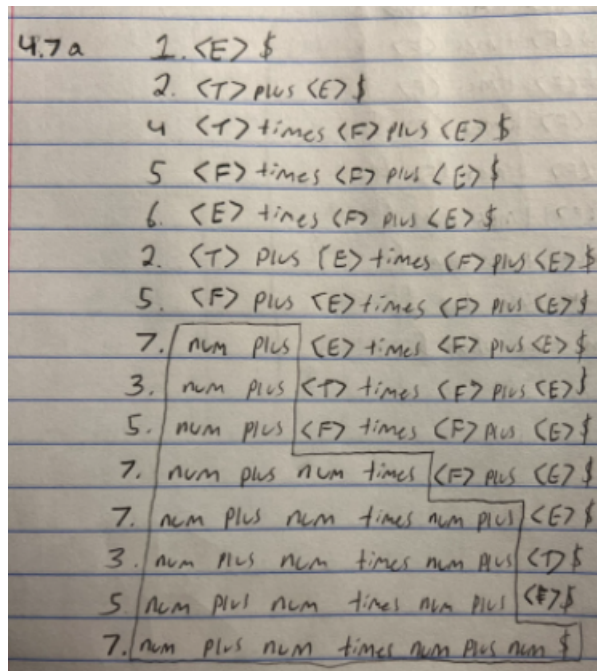 4.7a 1. <E> $
2. <T> plus <E> $
4 <T> times <F> plus <E> $
5 <F> times <F> plus <E> $
6. <E> times <F> plus <E> $
2. <T> plus <E> times <F> plus <E> $
5. <F> plus <E> times <F> plus <E> $
7. num plus <E> times <F> plus <E> $
3. num plus <T> times <F> plus <E> $
5. num plus <F> times <F> plus <E> $
7. num plus num times <F> plus <E> $
7. num plus num times num plus <E> $
3. num plus num times num plus <T> $
5 num plus num times num plus <F> $
7. num plus num times num plus num $